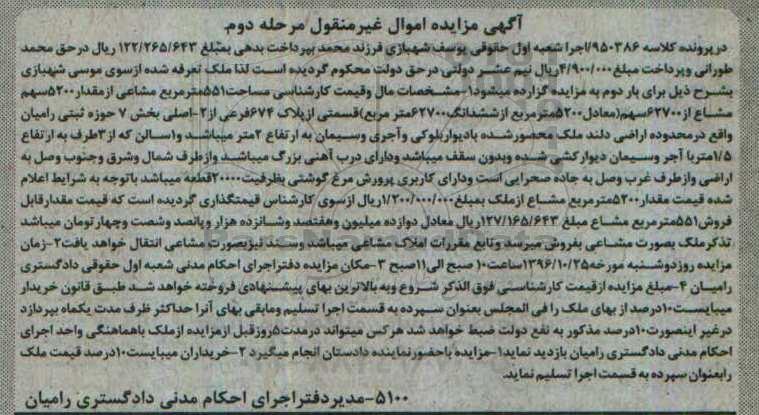 آگهی مزایده اموال غیرمنقول مرحله دوم
در پرونده کلاسه ۹۵۰۳۸۶/اجرا شعبه اول حقوقی یوسف شهبازی فرزند محمد بپرداخت بدهی بمبلغ ۱۲۲/۲۶۵/۶۴۳ ریال درحق محمد
طورانی وپرداخت مبلغ ۴/۹۰۰/۰۰۰ریال نیم عشر دولتی درحق دولت محکوم گردیده است لذا ملک تعرفه شده ازسوی موسی شهبازی
بشرح ذیل برای بار دوم به مزایده گزارده میشود۱-مشخصات مال وقیمت کارشناسی مساحت۵۵۱مترمربع مشاعی ازمقدار۵۲۰۰سهم
مشاع از۶۲۷۰۰سهم(معادل۵۲۰۰مترمربع ازششدانگ۶۲۷۰۰متر مربع)قسمتی ازپلاک ۶۷۴فرعی از۲-اصلی بخش ۷ حوزه ثبتی رامیان
واقع درمحدوده اراضی دلند ملک محصورشده بادیواربلوکی وآجری وسیمان به ارتفاع ۲متر میباشد و۱سالن که از۳طرف به ارتفاع
۱/۵متربا آجر وسیمان دیوارکشی شده وبدون سقف میباشد ودارای درب آهنی بزرگ میباشد وازطرف شمال وشرق وجنوب وصل به
اراضی وازطرف غرب وصل به جاده صحرایی است ودارای کاربری پرورش مرغ گوشتی بظرفیت۲۰۰۰۰قطعه میباشد باتوجه به شرایط اعلام
شده قیمت مقدار۵۲۰۰مترمربع مشاع ازملک بمبلغ۱/۲۰۰/۰۰۰/۰۰۰ریال ازسوی کارشناس قیمتگذاری گردیده است که قیمت مقدارقابل
فروش۵۵۱مترمربع مشاع مبلغ ۱۲۷/۱۶۵/۶۴۳ریال معادل دوازده میلیون وهفتصد وشانزده هزار وپانصد وشصت وچهار تومان میباشد
تذکرملک بصورت مشاعی بفروش میرسد وتابع مقررات املاک مشاعی میباشد وسند نیزبصورت مشاعی انتقال خواهد یافت۲-زمان
مزایده روزدوشنبه مورخه۱۳۹۶/۱۰/۲۵ساعت۱۰ صبح الی۱۱صبح ۳-مکان مزایده دفتراجرای احکام مدنی شعبه اول حقوقی دادگستری
رامیان ۴-مبلغ مزایده ازقیمت کارشناسی فوق الذکر شروع وبه بالاترین بهای پیشنهادی فروخته خواهد شد طبق قانون خریدار
میبایست۱۰درصد از بهای ملک را فی المجلس بعنوان سپرده به قسمت اجرا تسلیم ومابقی بهای آنرا حداکثر ظرف مدت یکماه بپردازد
درغیر اینصورت۱۰درصد مذکور به نفع دولت ضبط خواهد شد هرکس میتواند درمدت۵روزقبل ازمزایده ازملک باهماهنگی واحد اجرای
احکام مدنی دادگستری رامیان بازدید نماید۱-مزایده باحضورنماینده دادستان انجام میگیرد ۲-خریداران میبایست۱۰درصد قیمت ملک
رابعنوان سپرده به قسمت اجرا تسلیم نماید.
۵۱۰۰-مدیردفتراجرای احکام مدنی دادگستری رامیان